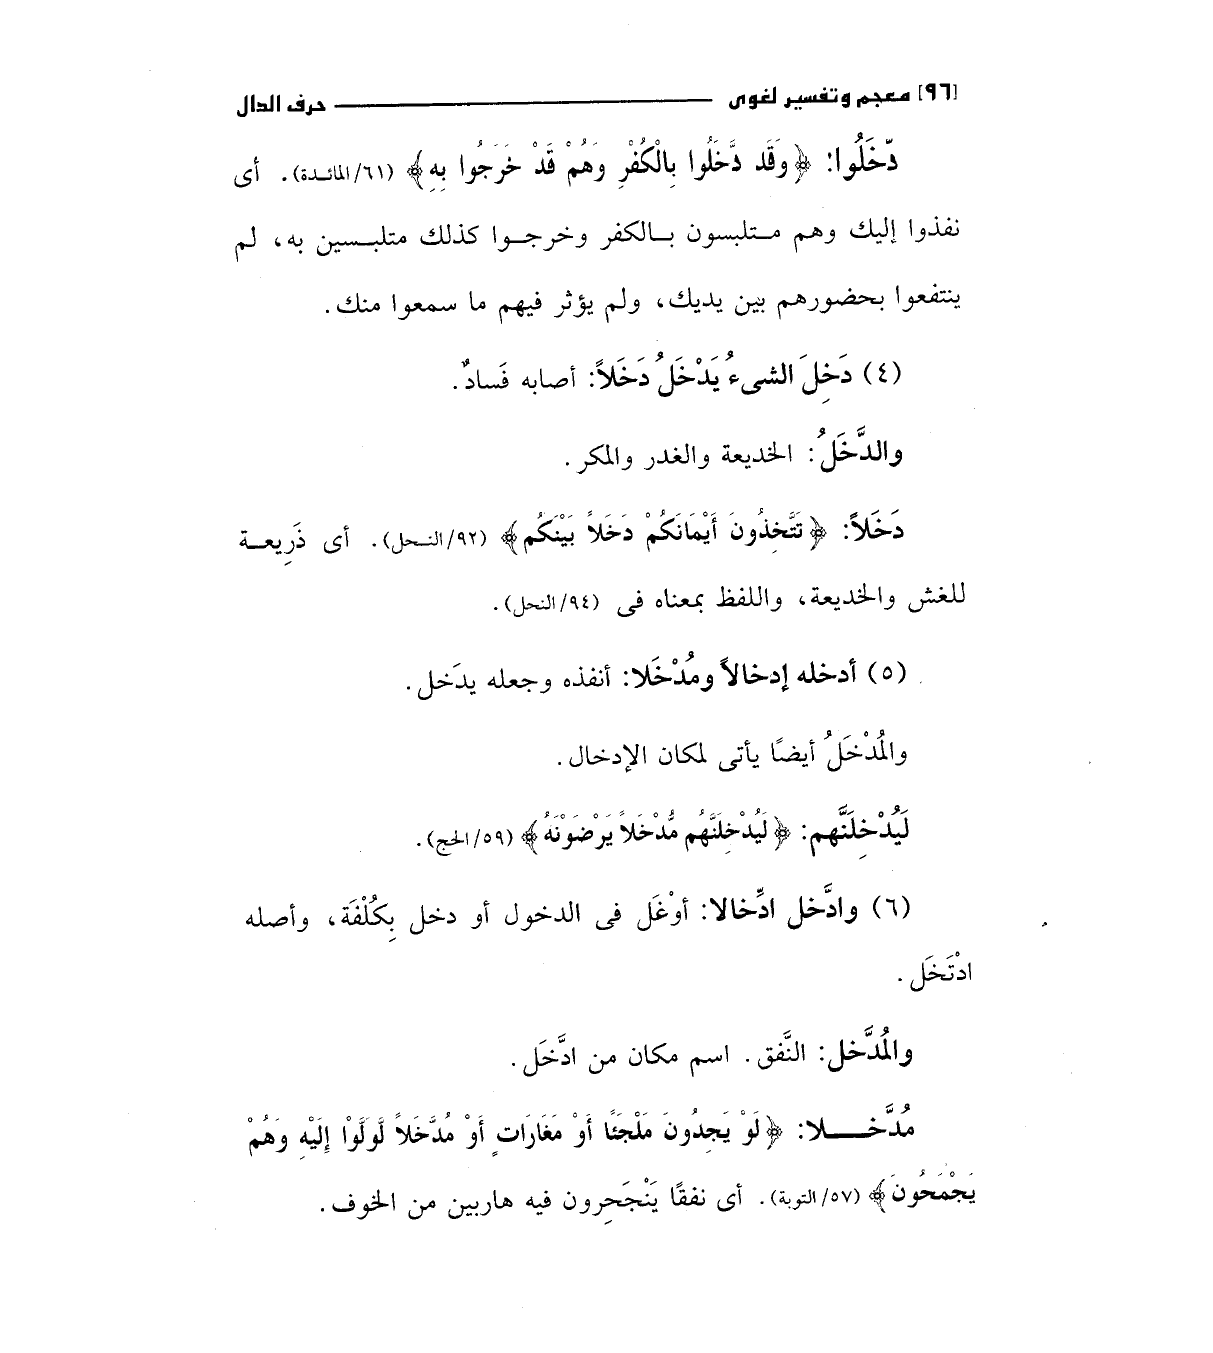 [٩٦] معجم وتفسير لغوى حرف الدال
دّخَلُوا: ﴿وَقَد دَّخَلُوا بِالْكُفْرِ وَهُمْ قَدْ خَرَجُوا بِهِ﴾ (٦١/المائدة). أى
نفذوا إليك وهم متلبسون بالكفر وخرجوا كذلك متلبسين به، لم
ينتفعوا بحضورهم بين يديك، ولم يؤثر فيهم ما سمعوا منك.
(٤) دَخِلَ الشىءُ يَدْخَلُ دَخَلاً: أصابه فَسادٌ.
والدَّخَلُ: الخديعة والغدر والمكر.
دَخَلاً: ﴿تَتَّخِذُونَ أَيْمَانَكُمْ دَخَلاً بَيْنَكُم﴾ (٩٢/النحل). أى ذَرِيعة
للغش والخديعة، واللفظ بمعناه فى (٩٤/النحل).
(٥) أدخله إدخالاً ومُدْخَلا: أنفذه وجعله يدَخل.
والمُدْخَلُ أيضًا يأتى لمكان الإدخال.
لَيُدْخِلَنَّهم: ﴿لَيُدْخِلَنَّهُم مُّدْخَلاً يَرْضَوْنَهُ﴾ (٥٩/الحج).
(٦) وادَّخل ادِّخالا: أوْغَل فى الدخول أو دخل بِكُلْفَة، وأصله
ادْتَخَل.
والمُدَّخل: النَّفق. اسم مكان من ادَّخَل.
مُدَّخلا: ﴿لَوْ يَجِدُونَ مَلْجَئًا أَوْ مَغَارَاتٍ أَوْ مُدَّخَلاً لَّوَلَّوْا إِلَيْهِ وَهُمْ
يَجْمَحُونَ﴾ (٥٧/التوبة). أى نفقًا يَنْجَحِرون فيه هاربين من الخوف.